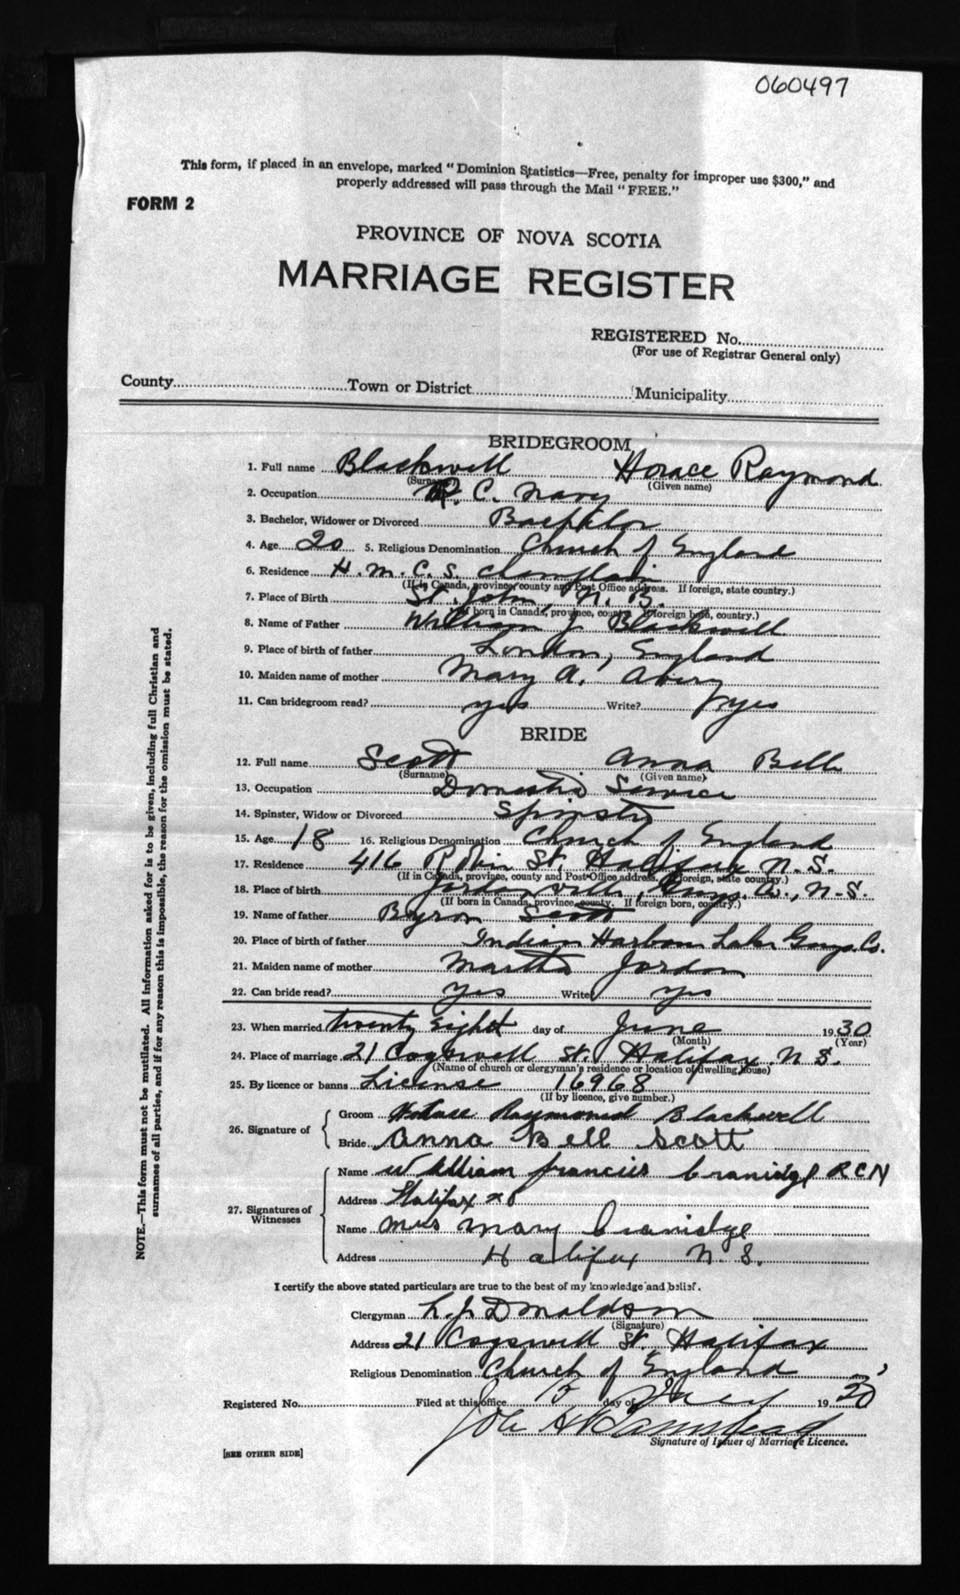 060497
This form, if placed in an envelope, marked "Dominion Statistics—Free, penalty for improper use $300," and
properly addressed will pass through the Mail "FREE."
FORM 2
PROVINCE OF NOVA SCOTIA
MARRIAGE REGISTER
REGISTERED No.
(For use of Registrar General only)
County Town or District Municipality
BRIDEGROOM
1. Full name Blackwell Horace Raymond
(Surname) (Given name)
2. Occupation R. C. Navy
3. Bachelor, Widower or Divorced Bachelor
4. Age 20 5. Religious Denomination Church of England
6. Residence H. M. C. S. Champlain
(If in Canada, province, county and Post Office address. If foreign, state country.)
7. Place of Birth St. John, N. B.
(If born in Canada, province, county. If foreign born, country.)
8. Name of Father William J. Blackwell
9. Place of birth of father London, England
10. Maiden name of mother Mary A. Avery
11. Can bridegroom read? yes Write? yes
BRIDE
12. Full name Scott Anna Bell
(Surname) (Given name)
13. Occupation Domestic Service
14. Spinster, Widow or Divorced Spinster
15. Age 18 16. Religious Denomination Church of England
17. Residence 416 Robie St. Halifax N. S.
(If in Canada, province, county and Post Office address. If foreign, state country.)
18. Place of birth Jordanville, Guys. Co., N. S.
(If born in Canada, province, county. If foreign born, country.)
19. Name of father Byron Scott
20. Place of birth of father Indian Harbour Lake Guys. Co.
21. Maiden name of mother Martha Jordon
22. Can bride read? yes Write yes
23. When married twenty eight day of June 1930
(Month) (Year)
24. Place of marriage 21 Cogswell St. Halifax N. S.
(Name of church or clergyman's residence or location of dwelling house)
25. By licence or banns License 16968
(If by licence, give number.)
26. Signature of
Groom Horace Raymond Blackwell
Bride Anna Bell Scott
27. Signatures of Witnesses
Name William Francis Cranidge RCN
Address Halifax NS
Name Mrs Mary Cranidge
Address Halifax N. S.
I certify the above stated particulars are true to the best of my knowledge and belief.
Clergyman L. J. Donaldson
(Signature)
Address 21 Cogswell St. Halifax
Religious Denomination Church of England
Registered No. Filed at this office 5 day of July 1930
Signature of Issuer of Marriage Licence.
[SEE OTHER SIDE]
NOTE.—This form must not be mutilated. All information asked for is to be given, including full Christian and
surnames of all parties, and if for any reason this is impossible, the reason for the omission must be stated.